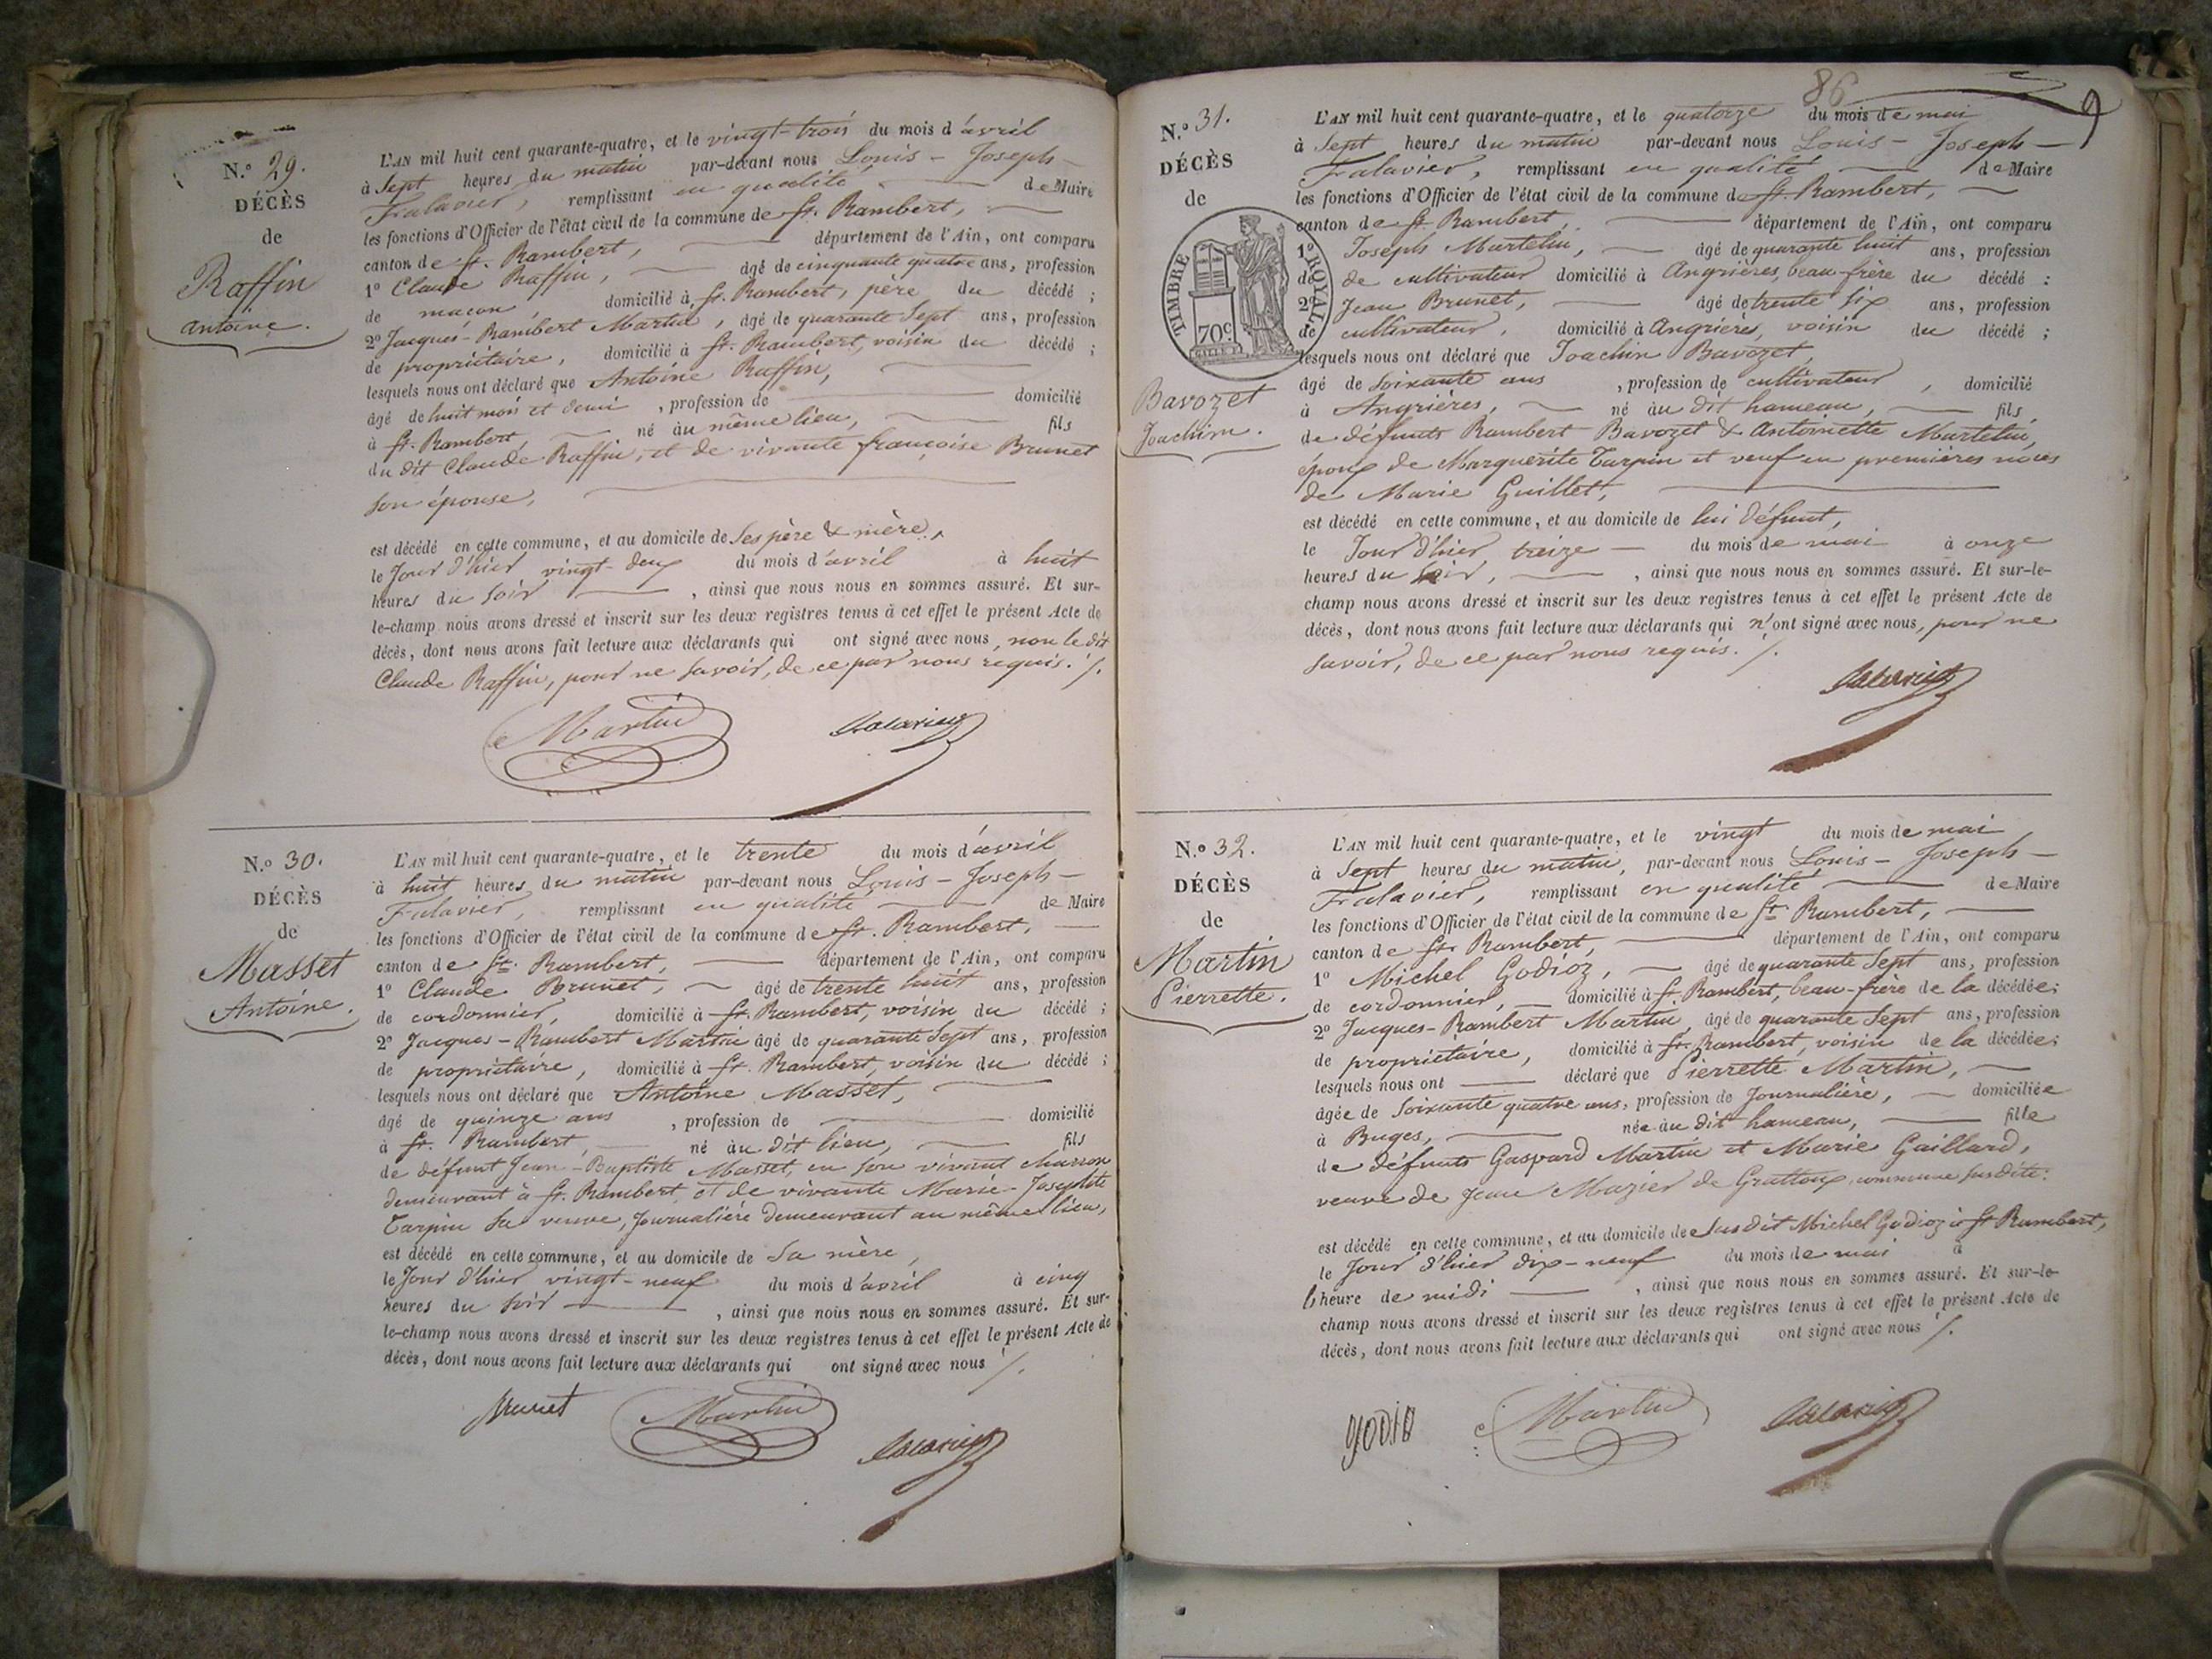 N.º 29.
DÉCÈS
de
Raffin
antoine.
L'AN mil huit cent quarante-quatre, et le vingt-trois du mois d'avril
à Sept heures du matin par-devant nous Louis - Joseph -
Falavier, remplissant en qualité de Maire
les fonctions d'Officier de l'état civil de la commune de St. Rambert,
canton de St. Rambert, département de l'Ain, ont comparu
1º Claude Raffin, âgé de cinquante quatre ans, profession
de maçon, domicilié à St. Rambert, père du décédé ;
2º Jacques-Rambert Martin, âgé de quarante Sept ans, profession
de propriétaire, domicilié à St. Rambert, voisin du décédé ;
lesquels nous ont déclaré que Antoine Raffin,
âgé de huit mois et demi, profession de domicilié
à St. Rambert, né au même lieu, fils
du dit Claude Raffin, et de vivante françoise Brunet
son épouse,
est décédé en cette commune, et au domicile de Ses père & mère,
le Jour d'hier vingt-deux du mois d'avril à huit
heures du soir, ainsi que nous nous en sommes assuré. Et sur-
le-champ nous avons dressé et inscrit sur les deux registres tenus à cet effet le présent Acte de
décès, dont nous avons fait lecture aux déclarants qui ont signé avec nous, non le dit
Claude Raffin, pour ne savoir, de ce par nous requis. /.
Martin Falavier
N.º 30.
DÉCÈS
de
Masset
Antoine.
L'AN mil huit cent quarante-quatre, et le trente du mois d'avril
à huit heures du matin par-devant nous Louis - Joseph -
Falavier, remplissant en qualité de Maire
les fonctions d'Officier de l'état civil de la commune de St. Rambert,
canton de St. Rambert, département de l'Ain, ont comparu
1º Claude Brunet, âgé de trente huit ans, profession
de cordonnier, domicilié à St. Rambert, voisin du décédé ;
2º Jacques-Rambert Martin âgé de quarante Sept ans, profession
de propriétaire, domicilié à St. Rambert, voisin du décédé ;
lesquels nous ont déclaré que Antoine Masset,
âgé de quinze ans, profession de domicilié
à St. Rambert, né au dit lieu, fils
de défunt Jean-Baptiste Masset, en son vivant charron
demeurant à St. Rambert, et de vivante Marie-Josephte
Tarpin sa veuve, Journalière demeurant au même lieu,
est décédé en cette commune, et au domicile de sa mère,
le Jour d'hier vingt-neuf du mois d'avril à cinq
heures du soir, ainsi que nous nous en sommes assuré. Et sur-
le-champ nous avons dressé et inscrit sur les deux registres tenus à cet effet le présent Acte de
décès, dont nous avons fait lecture aux déclarants qui ont signé avec nous /.
Brunet Martin Falavier
86
9
N.º 31.
DÉCÈS
de
TIMBRE ROYAL
70c
Bavozet
Joachim.
L'AN mil huit cent quarante-quatre, et le quatorze du mois de mai
à Sept heures du matin par-devant nous Louis - Joseph -
Falavier, remplissant en qualité de Maire
les fonctions d'Officier de l'état civil de la commune de St. Rambert,
canton de St. Rambert, département de l'Ain, ont comparu
1º Joseph Martelin, âgé de quarante huit ans, profession
de de cultivateur domicilié à Angrières, beau-frère du décédé ;
2º Jean Brunet, âgé de trente Six ans, profession
de cultivateur, domicilié à Angrières, voisin du décédé ;
lesquels nous ont déclaré que Joachim Bavozet,
âgé de soixante ans, profession de cultivateur, domicilié
à Angrières, né au dit hameau, fils
de défunts Rambert Bavozet & Antoinette Martelin,
époux de Marguerite Tarpin et veuf en premières noces
de Marie Guillet,
est décédé en cette commune, et au domicile de lui défunt,
le Jour d'hier treize du mois de mai à onze
heures du soir, ainsi que nous nous en sommes assuré. Et sur-le-
champ nous avons dressé et inscrit sur les deux registres tenus à cet effet le présent Acte de
décès, dont nous avons fait lecture aux déclarants qui n'ont signé avec nous, pour ne
savoir, de ce par nous requis. /.
Falavier
N.º 32.
DÉCÈS
de
Martin
Pierrette.
L'AN mil huit cent quarante-quatre, et le vingt du mois de mai
à Sept heures du matin, par-devant nous Louis - Joseph -
Falavier, remplissant en qualité de Maire
les fonctions d'Officier de l'état civil de la commune de St. Rambert,
canton de St. Rambert, département de l'Ain, ont comparu
1º Michel Godioz, âgé de quarante Sept ans, profession
de cordonnier, domicilié à St. Rambert, beau-frère de la décédée;
2º Jacques-Rambert Martin, âgé de quarante Sept ans, profession
de propriétaire, domicilié à St. Rambert, voisin de la décédée;
lesquels nous ont déclaré que Pierrette Martin,
âgée de soixante quatre ans, profession de Journalière, domiciliée
à Buges, née au dit hameau, fille
de défunts Gaspard Martin et Marie Gaillard,
veuve de Jean Mazier de Grattoux, commune susdite:
est décédée en cette commune, et au domicile de Susdit Michel Godioz à St Rambert,
le Jour d'hier dix-neuf du mois de mai à
l'heure de midi, ainsi que nous nous en sommes assuré. Et sur-le-
champ nous avons dressé et inscrit sur les deux registres tenus à cet effet le présent Acte de
décès, dont nous avons fait lecture aux déclarants qui ont signé avec nous /.
godio Martin Falavier